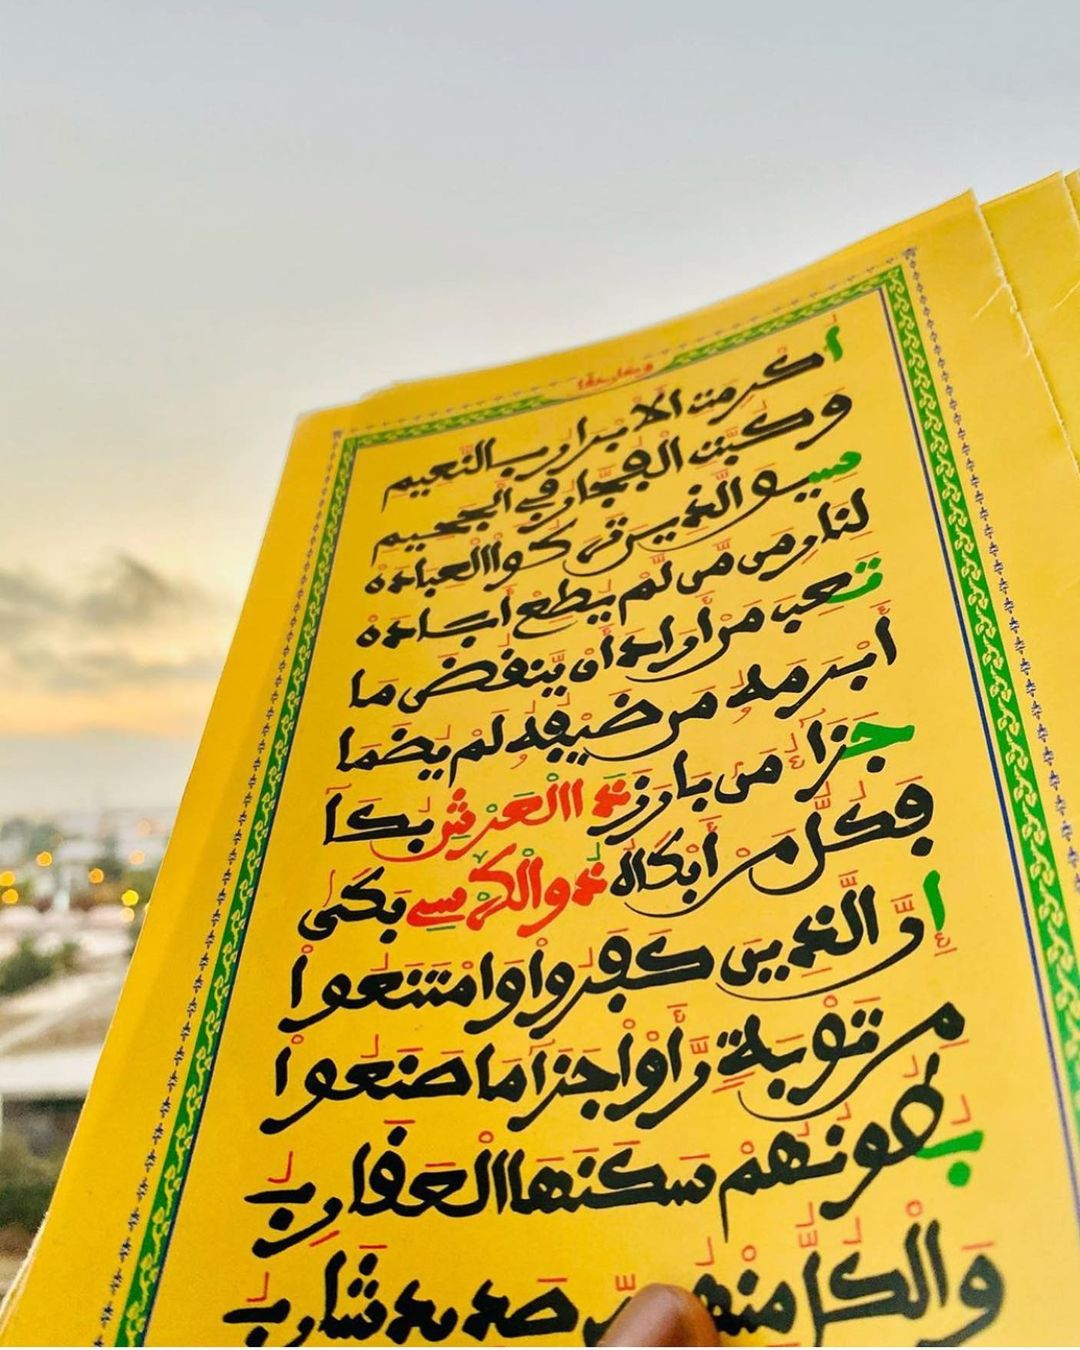 أَكْرَمْتَ الَابْرَارَ بِالنَّعِيمِ
وَكَبَّتَ الْفُجَّارَ فِي الْجَحِيمِ
سِيقَ الَّذِينَ تَرَكُوا الْعِبَادَهْ
لِنَارِ مَنْ مَنْ لَمْ يُطِعْ أَبَادَهْ
تَعِبَ مَنْ أَرَادَ أَنْ يَنْفُضَ مَا
أَبْرَمَهُ مَنْ ضَيْفُهُ لَمْ يُضَمَا
جَزَاءُ مَنْ بَارَزَ ذَا الْعَرْشِ بُكَآ
فَكُلُّ مَنْ أَبْكَاهُ ذُو الْكُرْسِي بَكَى
إِنَّ الَّذِينَ كَفَرُوا وَامْتَنَعُوا
مِنْ تَوْبَةٍ رَأَوْا جَزَا مَا صَنَعُوا
بُطُونُهُمْ سَكَنَهَا الْعَقَارِبُ
وَالْكُلُّ مِنْهُمْ صديد شَارِبُ